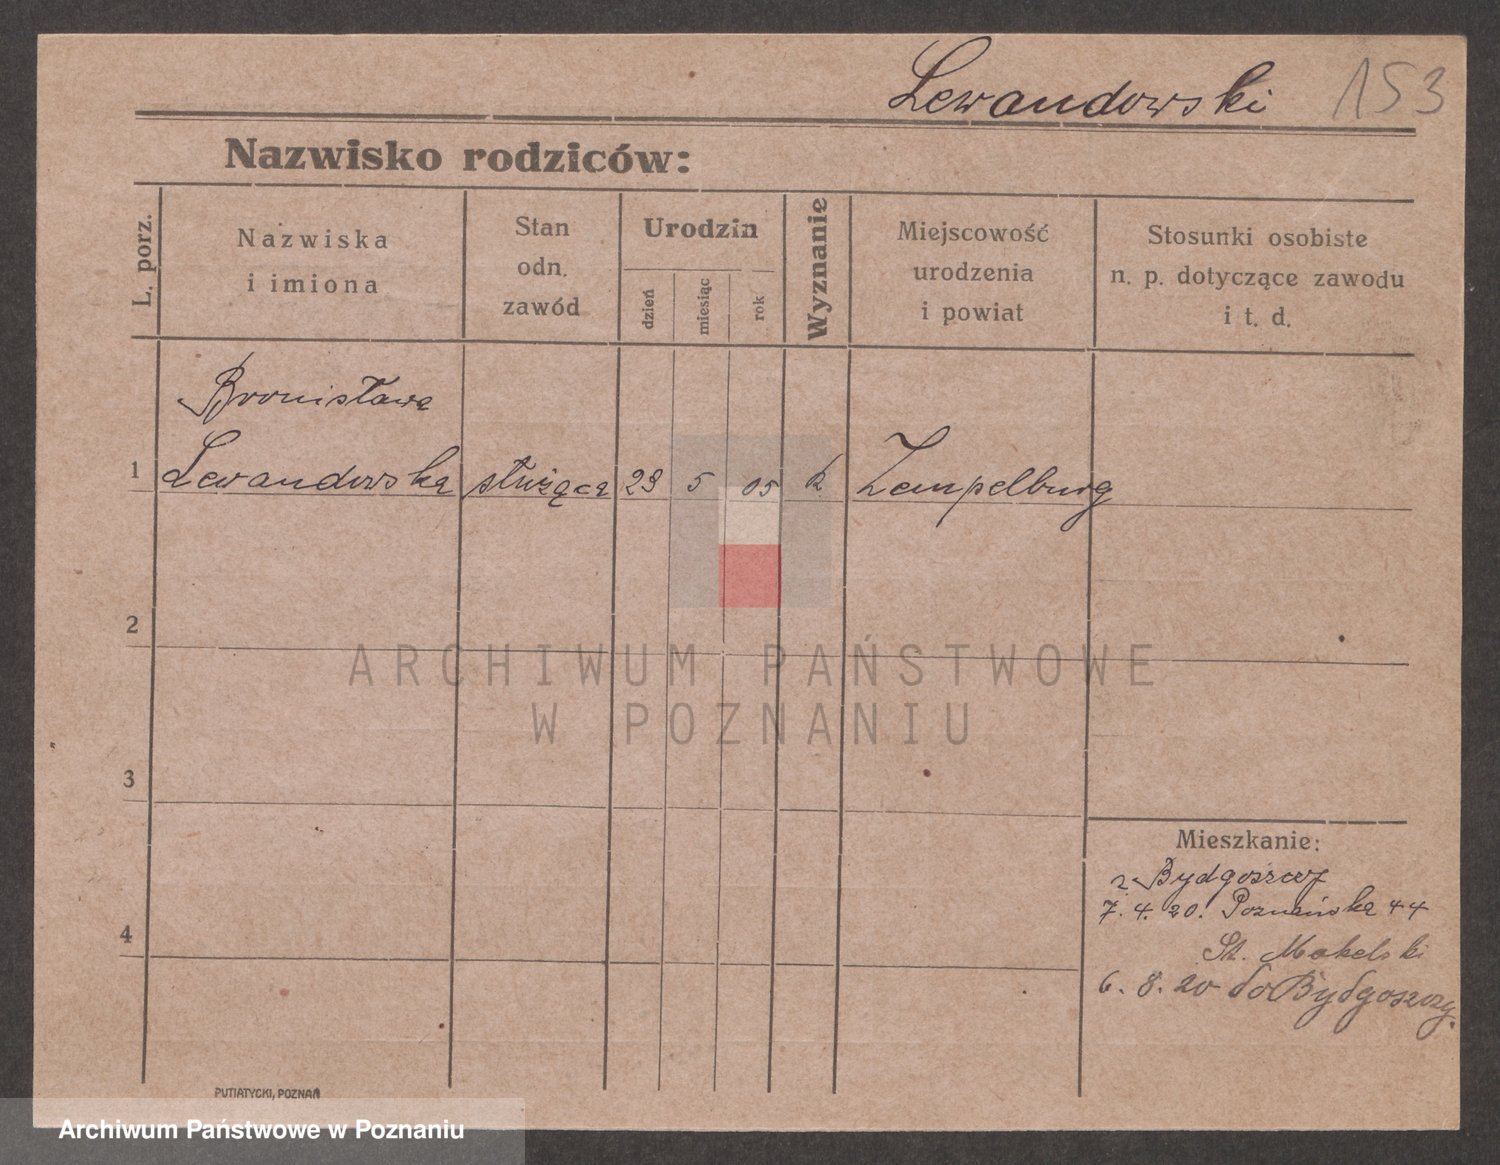 Lewandowski 153
Nazwisko rodziców:
L. porz.
Nazwiska
i imiona
Stan
odn.
zawód
Urodzin
dzień
miesiąc
rok
Wyznanie
Miejscowość
urodzenia
i powiat
Stosunki osobiste
n. p. dotyczące zawodu
i t. d.
Bronisława
1 Lewandowska służąca 23 5 05 k Zempelburg
2
ARCHIWUM PAŃSTWOWE
W POZNANIU
3
Mieszkanie:
z Bydgoszczy
7. 4. 20. Poznańska 44
4
St. Makelski
6. 8. 20 do Bydgoszczy.
PUTIATYCKI, POZNAŃ
Archiwum Państwowe w Poznaniu